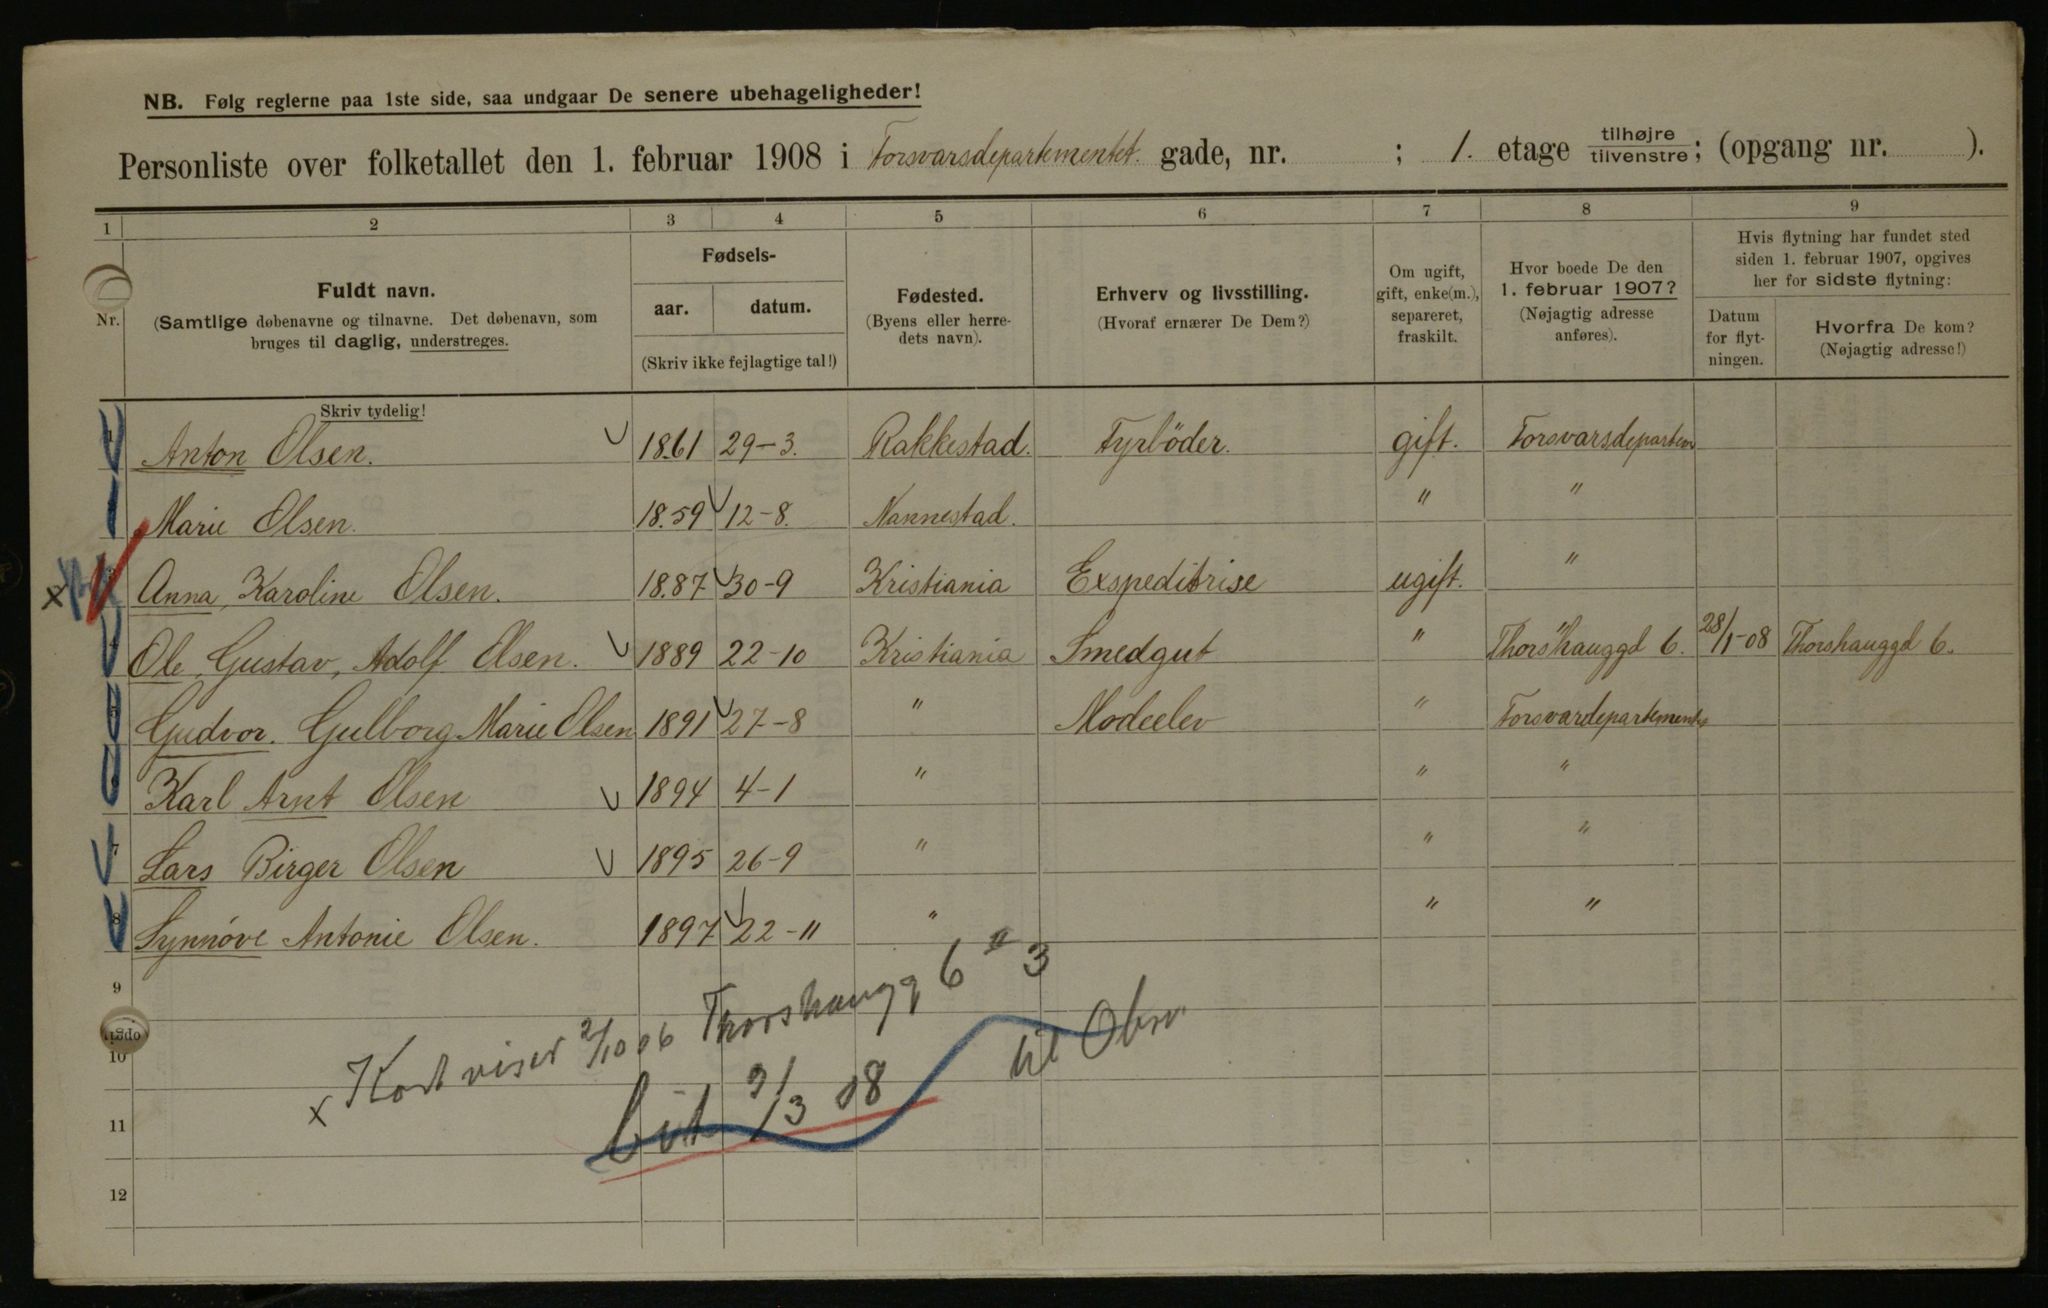 NB. Følg reglerne paa 1ste side, saa undgaar De senere ubehageligheder!
Personliste over folketallet den 1. februar 1908 i Forsvarsdepartementet. gade, nr. ; 1. etage tilhøjre tilvenstre; (opgang nr. ).
1 2 3 4 5 6 7 8 9
Nr.
Fuldt navn.
(Samtlige døbenavne og tilnavne. Det døbenavn, som
bruges til daglig, understreges.
Skriv tydelig!
Fødsels-
aar. datum.
(Skriv ikke fejlagtige tal!)
Fødested.
(Byens eller herre-
dets navn).
Erhverv og livsstilling.
(Hvoraf ernærer De Dem?)
Om ugift,
gift, enke(m.),
separeret,
fraskilt.
Hvor boede De den
1. februar 1907?
(Nøjagtig adresse
anføres).
Hvis flytning har fundet sted
siden 1. februar 1907, opgives
her for sidste flytning:
Datum
for flyt-
ningen.
Hvorfra De kom?
(Nøjagtig adresse!)
1 Anton Olsen. 1861 29-3. Rakkestad. Fyrböder. gift. Forsvarsdepartem
Marie Olsen. 1859 12-8. Nannestad. " "
x Anna, Karoline Olsen. 1887 30-9 Kristiania Exspeditrise ugift. "
Ole, Gustav, Adolf Olsen. 1889 22-10 Kristiania Smedgut " Thorshauggd 6. 28/1-08 Thorshauggd 6.
5 Gudvor. Gulborg Marie Olsen 1891 27-8 " Modeelev " Forsvardepartements
6 Karl Arnt Olsen 1894 4-1 " " "
7 Lars Birger Olsen 1895 26-9 " " "
8 Synnöve Antonie Olsen. 1897 22-11 " " "
9
10
11
12
x Kort viser 2/10 06 Thorshaugg 6 II 3
9/3 08
til Obsv.